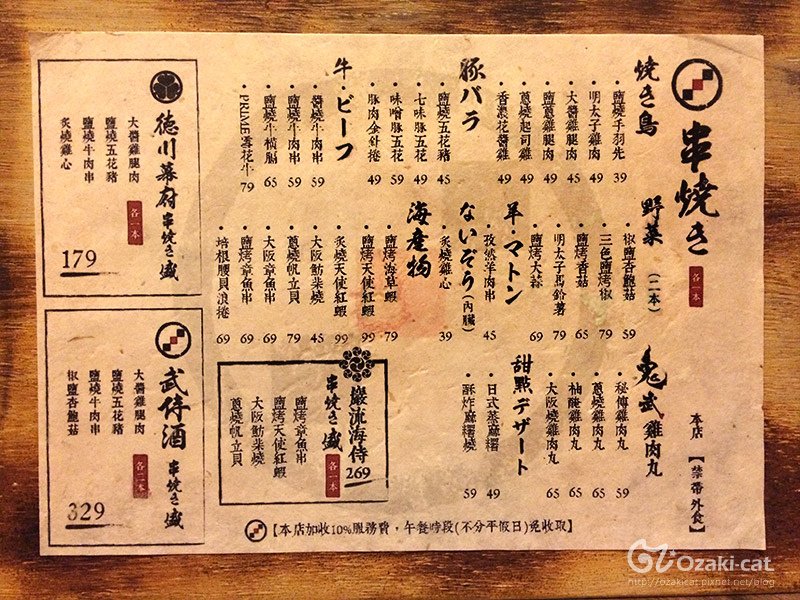 串焼き
各一本
本店 【禁帶外食】
焼き鳥
・鹽燒手羽先 39
・明太子雞肉 49
・大醬雞腿肉 45
・鹽蔥雞腿肉 49
・蔥燒起司雞 49
・香濃花醬雞 49
豚バラ
・鹽燒五花豬 45
・七味豚五花 49
・味噌豚五花 59
・豚肉金針捲 49
牛・ビーフ
・醬燒牛肉串 59
・鹽燒牛肉串 59
・鹽燒牛橫膈 65
・PRIME雪花牛 79
野菜(二本)
・椒鹽杏鮑菇 59
・三色鹽烤椒 79
・鹽烤香菇 65
・明太子馬鈴薯 79
・鹽烤大蒜 69
羊・マトン
・孜然羊肉串 45
ないぞう(內臟)
・炙燒雞心 39
海産物
・鹽烤海草蝦 79
・鹽烤天使紅蝦 99
・炙燒天使紅蝦 99
・大阪魴柴燒 45
・蔥燒帆立貝 79
・大阪章魚串 69
・鹽烤章魚串 69
・培根腰貝浪捲 69
鬼武雞肉丸
・秘傳雞肉丸 59
・蔥燒雞肉丸 65
・柚醃雞肉丸 65
・大阪燒雞肉丸 65
甜點デザート
・日式茶麻糬 49
・酥炸麻糬燒 59
巌流海侍
串焼き盛
各一本
269
鹽烤章魚串
鹽烤天使紅蝦
大阪魴柴燒
蔥燒帆立貝
徳川幕府 串焼き盛
各一本
大醬雞腿肉
鹽燒五花豬
鹽燒牛肉串
炙燒雞心
179
武侍酒 串焼き盛
各一本
大醬雞腿肉
鹽燒五花豬
鹽燒牛肉串
椒鹽杏鮑菇
329
【本店加收10%服務費,午餐時段(不分平假日)免收取】
Ozaki-cat.
http://ozakicat.pixnet.net/blog